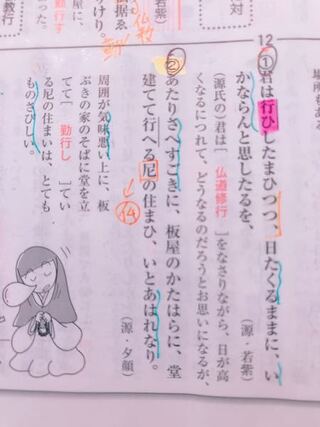 12
①君は行ひしたまひつつ、日たくるままに、い
かならんと思したるを、
（源・若紫）
（源氏の）君は［仏道修行］をなさりながら、日が高
くなるにつれて、どうなるのだろうとお思いになるが、
②あたりさへすごきに、板屋のかたはらに、堂
建てて行へる尼の住まひ、いとあはれなり。
（源・夕顔）
仏
周囲が気味悪い上に、板
ぶきの家のそばに堂を立
てて［勤行し］てい
る尼の住まいは、とても
ものさびしい。